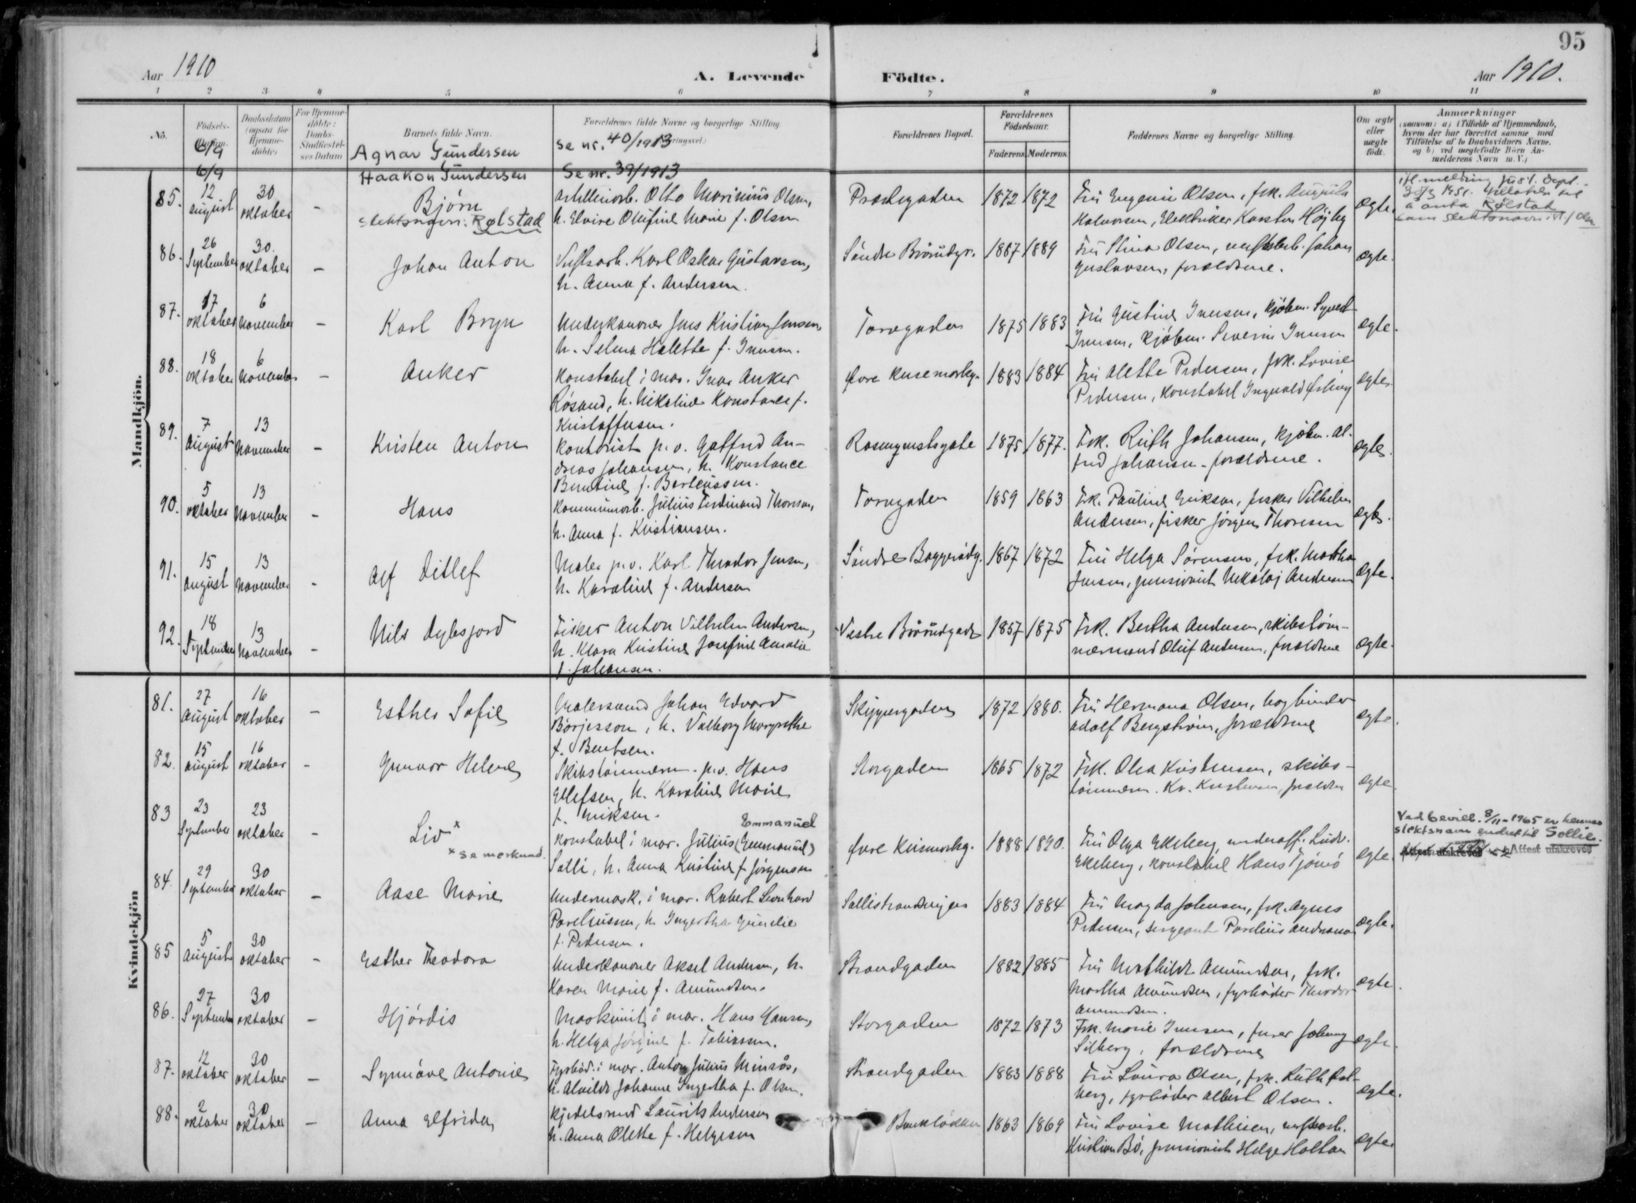 95
Aar 1910 A. Levende Födte. Aar 1910.
1 2 3 4 5 6 7 8 9 10 11
No. Födsels- Daabsdatum (ogsaa for Hjemme-døbte) For Hjemme-døbte: Daabs- Stadfæstel- ses Datum Barnets fulde Navn. Forældrenes fulde Navne og borgerlige Stilling Forældrenes Bopæl. Forældrenes Födselsaar. Faderens Moderens Faddernes Navne og borgerlige Stilling. Om ægte eller uægte födt. Anmærkninger
6/9 Agnar Gundersen Se nr. 40/1913
6/9 Haakon Gundersen Se nr. 39/1913
Mandkjön.
85. 12 august 30 oktober - Bjørn
slektsnavn: Rolstad
Artilleriarb. Otto Marinius Olsen,
h. Elvire Olufine Marie f. Olsen
Prestegaden 1872 1872
Fru Eugenie Olsen, frk. Augusta
Halvorsen, Elektriker Karsten Højby
ægte.
86. 26 September 30. oktober - Johan Anton
Verftsarb. Karl Oskar Gustavsen,
h. Anna f. Andersen.
Søndre Brårudgt. 1887 1889
Fru Stina Olsen, verftsarb. Johan
Gustavsen, forældrene.
ægte.
87. 17 oktober 6 November - Karl Bryn
Underkanoner Jens Kristian Jensen,
h. Selma Halette f. Iversen.
Torvegaden 1875 1883
Fru Gustine Iversen, kjøbm. Syvert
Iversen, kjøbm. Severin Iversen
ægte.
88. 18 oktober 6 November - Anker
Konstabel i mar. Ivar Anker
Røsand, h. Nikoline Konstance f.
Kristoffersen.
1883 1884
Fru Alette Pedersen, frk. Lovise
Pedersen, konstabel Ingvald
ægte.
89. 7 August 13 November - Kristen Anton
Kontorist p.v. Gotfred An-
dreas Johansen, h. Konstance
Berntine f. Berteussen.
Rosenqvistsgate 1875 1877.
Frk. Ruth Johansen, kjøbm. Al-
fred Johansen - forældrene.
ægte.
90. 5 oktober 13 November - Hans
Kommunearb. Julius Ferdinand Thoresen,
h. Anna f. Kristiansen.
Torvegaden 1859 1863
Frk. Pauline Eriksen, fisker Vilhelm
Andersen, fisker Jørgen Thoresen
ægte.
91. 15 august 13 November - Alf Ditlef
Maler p.v. Karl Theodor Jensen,
h. Karoline f. Andersen
1867 1872
Fru Helga Sørensen, frk. Martha
Jensen, pensionist Nikolaj Andersen
ægte.
92. 18 September 13 November - Nils Dybsjord
Fisker Anton Vilhelm Andersen,
h. Klara Kristine Josefine Amalie
f. Johansen.
Vestre Brårudgade 1857 1875
Frk. Bertha Andersen, skibstøm-
mermand Oluf Andersen, forældrene
ægte.
Kvindekjön
81. 27 August 16 oktober - Esther Sofie
Malersvend Johan Edvard
Børjesson, h. Valborg Margrethe
f. Bentsen.
Skippergaden 1872 1880.
Fru Hermana Olsen, bogbinder
Adolf Bergstrøm, forældrene
ægte.
82. 15 August 16 oktober - Gunvor Helene
Skibstømmerm. p.v. Hans
Ellefsen, h. Karoline Marie
f. Eriksen.
Storgaden 1865 1872
Frk. Olea Kristensen, skibs-
tømmerm. Kr. Kristensen, forældre
ægte.
83 23 September 23 oktober - Liv x
x se merknad.
Emmanuel
Konstabel i mar. Julius (Emmanuel)
Solli, h. Anna Kristine f. Jørgensen
1888 1890.
Fru Olga Ekeberg, underoff. Ludv.
Ekeberg, konstabel Hans
ægte.
Ved bevill. 9/11-1965 er hennes
slektsnavn endret til Sollie.
Attest utskrevet
84. 29 September 30 oktober - Aase Marie
Undermask. i mar. Robert Leonhard
Pareliussen, h. Ingertha Gunelie
f. Pedersen.
1883 1884
Fru Magda Johansen, frk. Agnes
Pedersen, sergeant Parelius Andreasen
ægte.
85 5 August 30 oktober - Esther Theodora
Underkanoner Aksel Andersen, h.
Karen Marie f. Amundsen.
Strandgaden 1882 1885
Fru Mathilde Amundsen, frk.
Martha Amundsen, fyrbøder Theodor
Amundsen.
ægte.
86. 27 September 30 oktober - Hjørdis
Maskinist i mar. Hans Hansen,
h. Helga Jørgine f. Tobiassen.
Storgaden 1872 1873
Frk. Marie Iversen,
Solberg, forældrene
ægte.
87. 12 oktober 30 oktober - Synnøve Antonie
Fyrbød. i mar. Anton Julius
h. Alvilde Johanne Ingertha f. Olsen.
Strandgaden 1883 1888
Fru Laura Olsen, frk. Ruth
berg, fyrbøder Albert Olsen.
ægte.
88. 2 oktober 30 oktober - Anna Elfrida
Kjedelsmed Laurits Andersen
h. Anna Olette f. Helgesen
1863 1869
Fru Lovise Mathisen, verftsarb.
Kristian Bø, pensionist Helge Holtan
ægte.